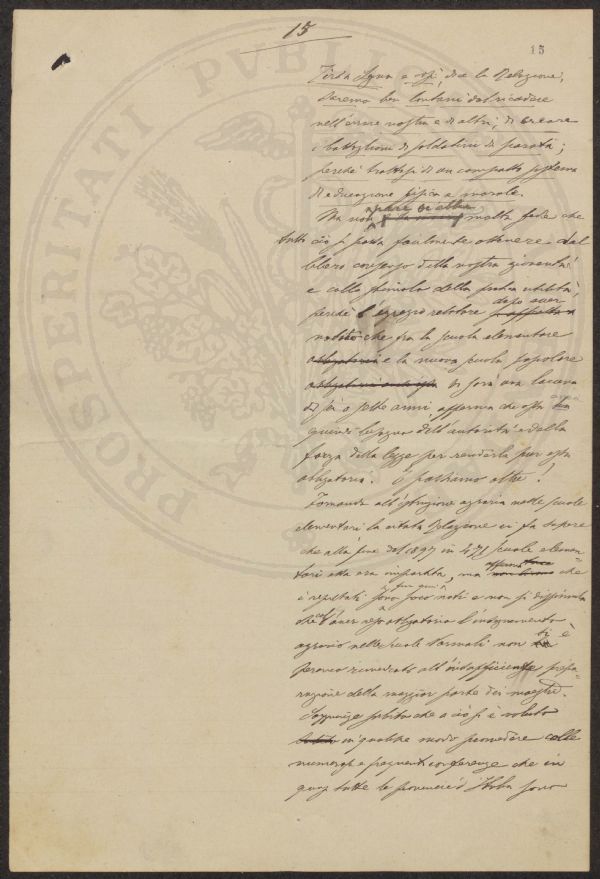 15
15
PROSPERITATI PVBLICAE
a dì, dice la Relazione,
saremo ben lontani dal ricadere
nell'errore nostro e di altri, di creare
i battaglioni di soldatini di parata;
perché trattasi di un compatto sistema
di educazione fisica e morale.
Ma non molta fede che
tutto ciò si possa facilmente ottenere dal
libero consenso della nostra gioventù
e colla della pratica utilità,
perché l'egregio relatore dopo aver
notato che fra la scuola elementare
obbligatoria e la nuova scuola popolare
si farà una lacuna
di sei o sette anni, afferma che
quindi bisogno dell'autorità e della
forza della legge per renderla pur essa
obbligatoria. E passiamo oltre!
Tornando all'istruzione agraria nelle scuole
elementari la citata Relazione ci fa sapere
che alla fine del 1897 in 471 scuole elemen-
tari essa era impartita, ma afferma che
i risultati sono fin qui poco noti e non si dissimula
che coll'aver reso obbligatorio l'insegnamento
agrario nelle scuole Normali non si è
perciò rimediato all'insufficiente prepa-
razione della maggior parte dei maestri.
Soggiunge subito che a ciò si è voluto
in qualche modo provvedere colle
numerose e frequenti conferenze che in
quasi tutte le provincie d'Italia sono